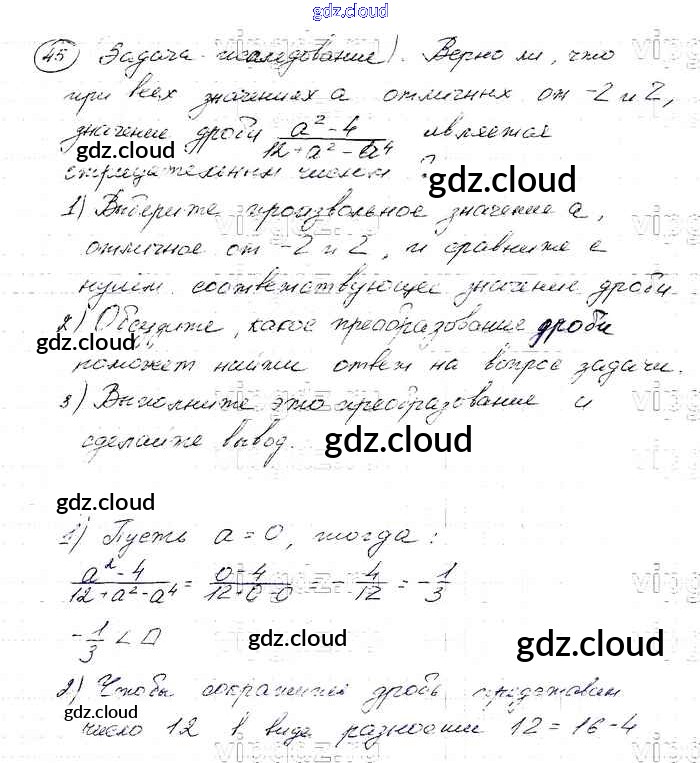 gdz.cloud
45 Задача-исследование). Верно ли, что
при всех значениях a отличных от -2 и 2,
значение дроби (a² - 4)/(12 + a² - a⁴) является
gdz.cloud
отрицательным числом ?
gdz.cloud
1) Выберите произвольное значение a,
отличное от -2 и 2, и сравните с
нулём соответствующее значение дроби.
2) Обсудите, какое преобразование дроби
gdz.cloud
поможет найти ответ на вопрос задачи.
3) Выполните это преобразование и
сделайте вывод.
gdz.cloud
gdz.cloud
1) Пусть a = 0, тогда:
(a² - 4)/(12 + a² - a⁴) = (0 - 4)/(12 + 0 - 0) = - 4/12 = - 1/3
- 1/3 < 0
gdz.cloud
gdz.cloud
2) Чтобы сократить дробь представим
gdz.cloud
число 12 в виде разности 12 = 16 - 4